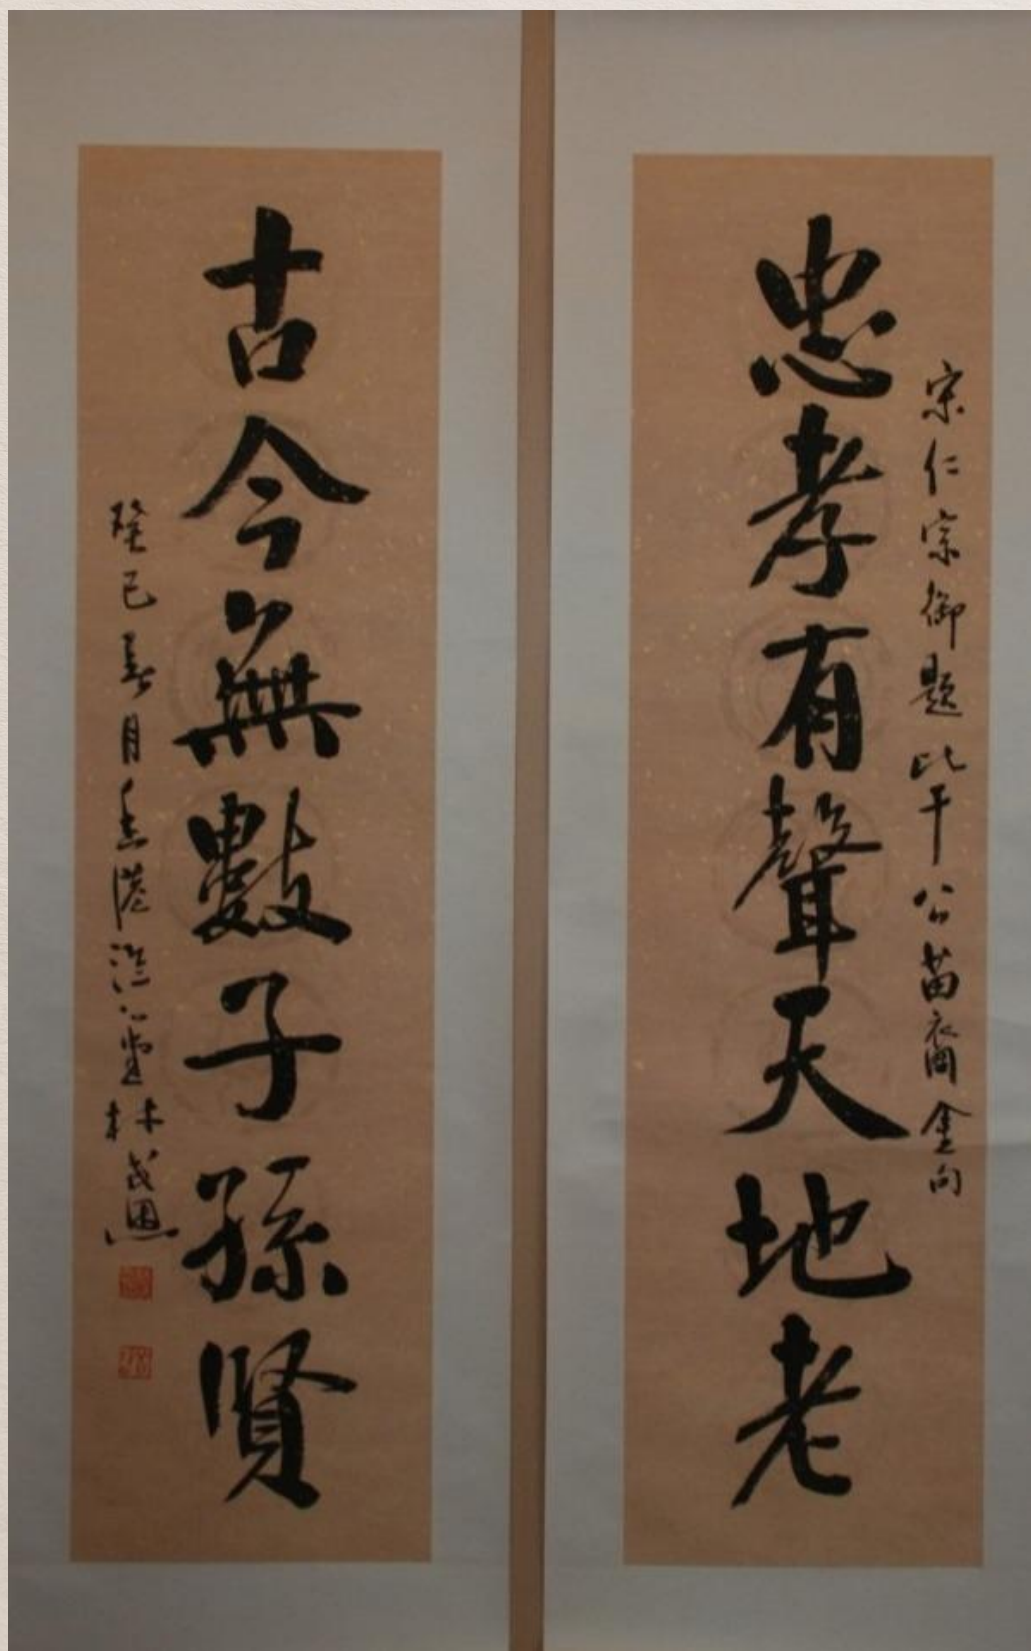 宋仁宗御題比干公苗裔金句
忠孝有聲天地老
古今無數子孫賢
癸巳春月香港心堂林